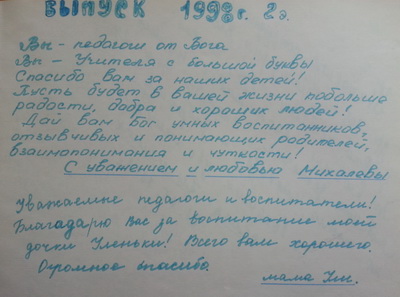 ВЫПУСК 1998г. 2 э.
Вы - педагоги от Бога
Вы - Учителя с большой буквы
Спасибо вам за наших детей!
Пусть будет в вашей жизни побольше
радости, добра и хороших людей!
Дай вам Бог умных воспитанников,
отзывчивых и понимающих родителей,
взаимопонимания и чуткости!
С уважением и любовью Михалевы
Уважаемые педагоги и воспитатели!
Благадарю Вас за воспитание моей
дочки Уленьки! Всего вам хорошего.
Огромное спасибо.
мама